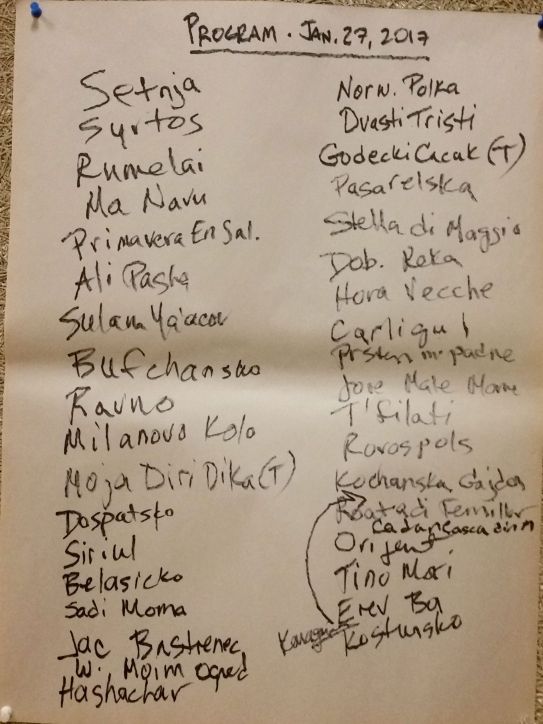 PROGRAM - JAN. 27, 2017
Setnja
Syrtos
Rumelai
Ma Navu
Primavera En Sal.
Ali Pasha
Sulam Ya'acov
Bufchansko
Ravno
Milanovo Kolo
Moja Diri Dika (T)
Dospatsko
Siriul
Belasicko
Sadi Moma
Jac Bistrenec
W. Moim Ogrod
Hashachar
Norw. Polka
Dvasti Tristi
Godecki Cacak (T)
Pasarelska
Stella di Maggio
Dob. Reka
Hora Vecche
Carligul
Prsten mi padne
Jove Male Mome
T'filati
Rorospols
Kochanska Gajda
di Femillor
Cadaneasca din
Orijent
Tino Mori
Erev Ba
Kostursko